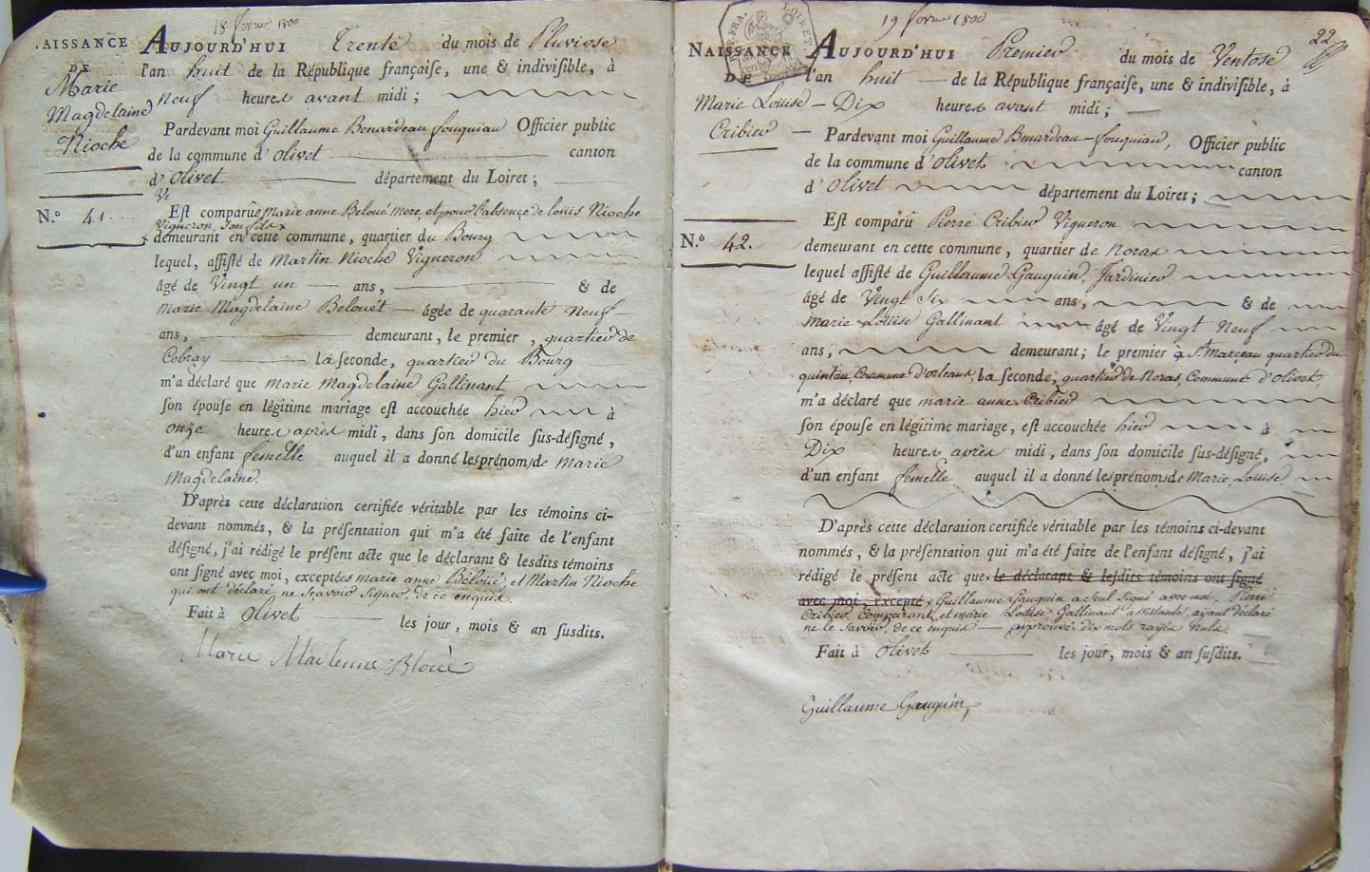 18 fevrier 1800
AISSANCE
DE
Marie
Magdelaine
Nioche
N.o 41.
AUJOURD'HUI Trente du mois de Pluviose
l'an huit de la République française, une & indivisible, à
neuf heures avant midi ;
Pardevant moi Guillaume Benardeau fouquiau Officier public
de la commune d'olivet canton
d'olivet département du Loiret ;
Est comparûe marie anne Beloué mere, et pour l'absence de louis Nioche
Vigneron, son fils
demeurant en cette commune, quartier du Bourg
lequel, assisté de Martin Nioche Vigneron
âgé de Vingt un ans, & de
marie Magdelaine Belouet âgée de quarante neuf
ans, demeurant, le premier, quartier de
Cobray la seconde, quartier du Bourg
m'a déclaré que marie Magdelaine Gallinant
son épouse en légitime mariage est accouchée hier à
onze heures après midi, dans son domicile sus-désigné,
d'un enfant femelle auquel il a donné les prénoms de Marie
Magdelaine.
D'après cette déclaration certifiée véritable par les témoins ci-
devant nommés, & la présentation qui m'a été faite de l'enfant
désigné, j'ai rédigé le présent acte que le déclarant & lesdits témoins
ont signé avec moi, exceptées marie anne Beloué, et Martin Nioche
qui ont déclaré ne sçavoir signer, de ce enquis.
Fait à Olivet les jour, mois & an susdits.
Marie Mailenne Bloué
19 fevrier 1800
22
NAISSANCE
DE
Marie Louise
Cribier
N.o 42.
AUJOURD'HUI Premier du mois de Ventose
l'an huit de la République française, une & indivisible, à
Dix heures avant midi ;
Pardevant moi Guillaume Benardeau-fouquiau, Officier public
de la commune d'olivet canton
d'Olivet département du Loiret ;
Est comparû Pierre Cribier Vigneron
demeurant en cette commune, quartier de Noras
lequel assisté de Guillaume Gauguin, Jardinier
âgé de Vingt Six ans, & de
marie Louise Gallinant âgé de Vingt Neuf
ans, demeurant ; le premier à St. Marceau quartier du
quintau, Commune d'orleans, la seconde, quartier de Noras, Commune d'olivet,
m'a déclaré que marie anne Cribier
son épouse en légitime mariage, est accouchée hier à
Dix heures après midi, dans son domicile sus-désigné,
d'un enfant femelle auquel il a donné les prénoms de Marie Louise
D'après cette déclaration certifiée véritable par les témoins ci-devant
nommés, & la présentation qui m'a été faite de l'enfant désigné, j'ai
rédigé le présent acte que le déclarant & lesdits témoins ont signé
avec moi, excepté, Guillaume Gauguin a seul signé avec moi, Pierre
Cribier Comparant, et marie Louise Gallinant assistante, ayant déclaré
ne le savoir, de ce enquis approuvé dix mots rayés nuls.
Fait à Olivet les jour, mois & an susdits.
Guillaume Gauguin,